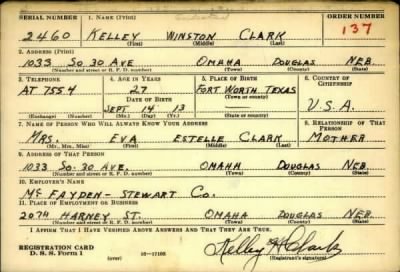 SERIAL NUMBER 1. NAME (Print) ORDER NUMBER
2460 KELLEY WINSTON CLARK 137
(First) (Middle) (Last)
2. ADDRESS (Print)
1033 SO. 30 AVE OMAHA DOUGLAS NEB.
(Number and street or R. F. D. number) (Town) (County) (State)
3. TELEPHONE 4. AGE IN YEARS 5. PLACE OF BIRTH 6. COUNTRY OF CITIZENSHIP
AT 7554 27 FORT WORTH TEXAS
DATE OF BIRTH (Town or county)
SEPT. 14 13 U.S.A.
(Exchange) (Number) (Mo.) (Day) (Yr.) (State or country)
7. NAME OF PERSON WHO WILL ALWAYS KNOW YOUR ADDRESS 8. RELATIONSHIP OF THAT PERSON
MRS. EVA ESTELLE CLARK MOTHER
(Mr., Mrs., Miss) (First) (Middle) (Last)
9. ADDRESS OF THAT PERSON
1033 SO. 30 AVE. OMAHA DOUGLAS NEB.
(Number and street or R. F. D. number) (Town) (County) (State)
10. EMPLOYER'S NAME
MCFAYDEN-STEWART CO.
11. PLACE OF EMPLOYMENT OR BUSINESS
2074 HARNEY ST. OMAHA DOUGLAS NEB.
(Number and street or R. F. D. number) (Town) (County) (State)
I AFFIRM THAT I HAVE VERIFIED ABOVE ANSWERS AND THAT THEY ARE TRUE.
REGISTRATION CARD
D. S. S. Form 1 (over) 16—17105 Kelley W Clark
(Registrant's signature)